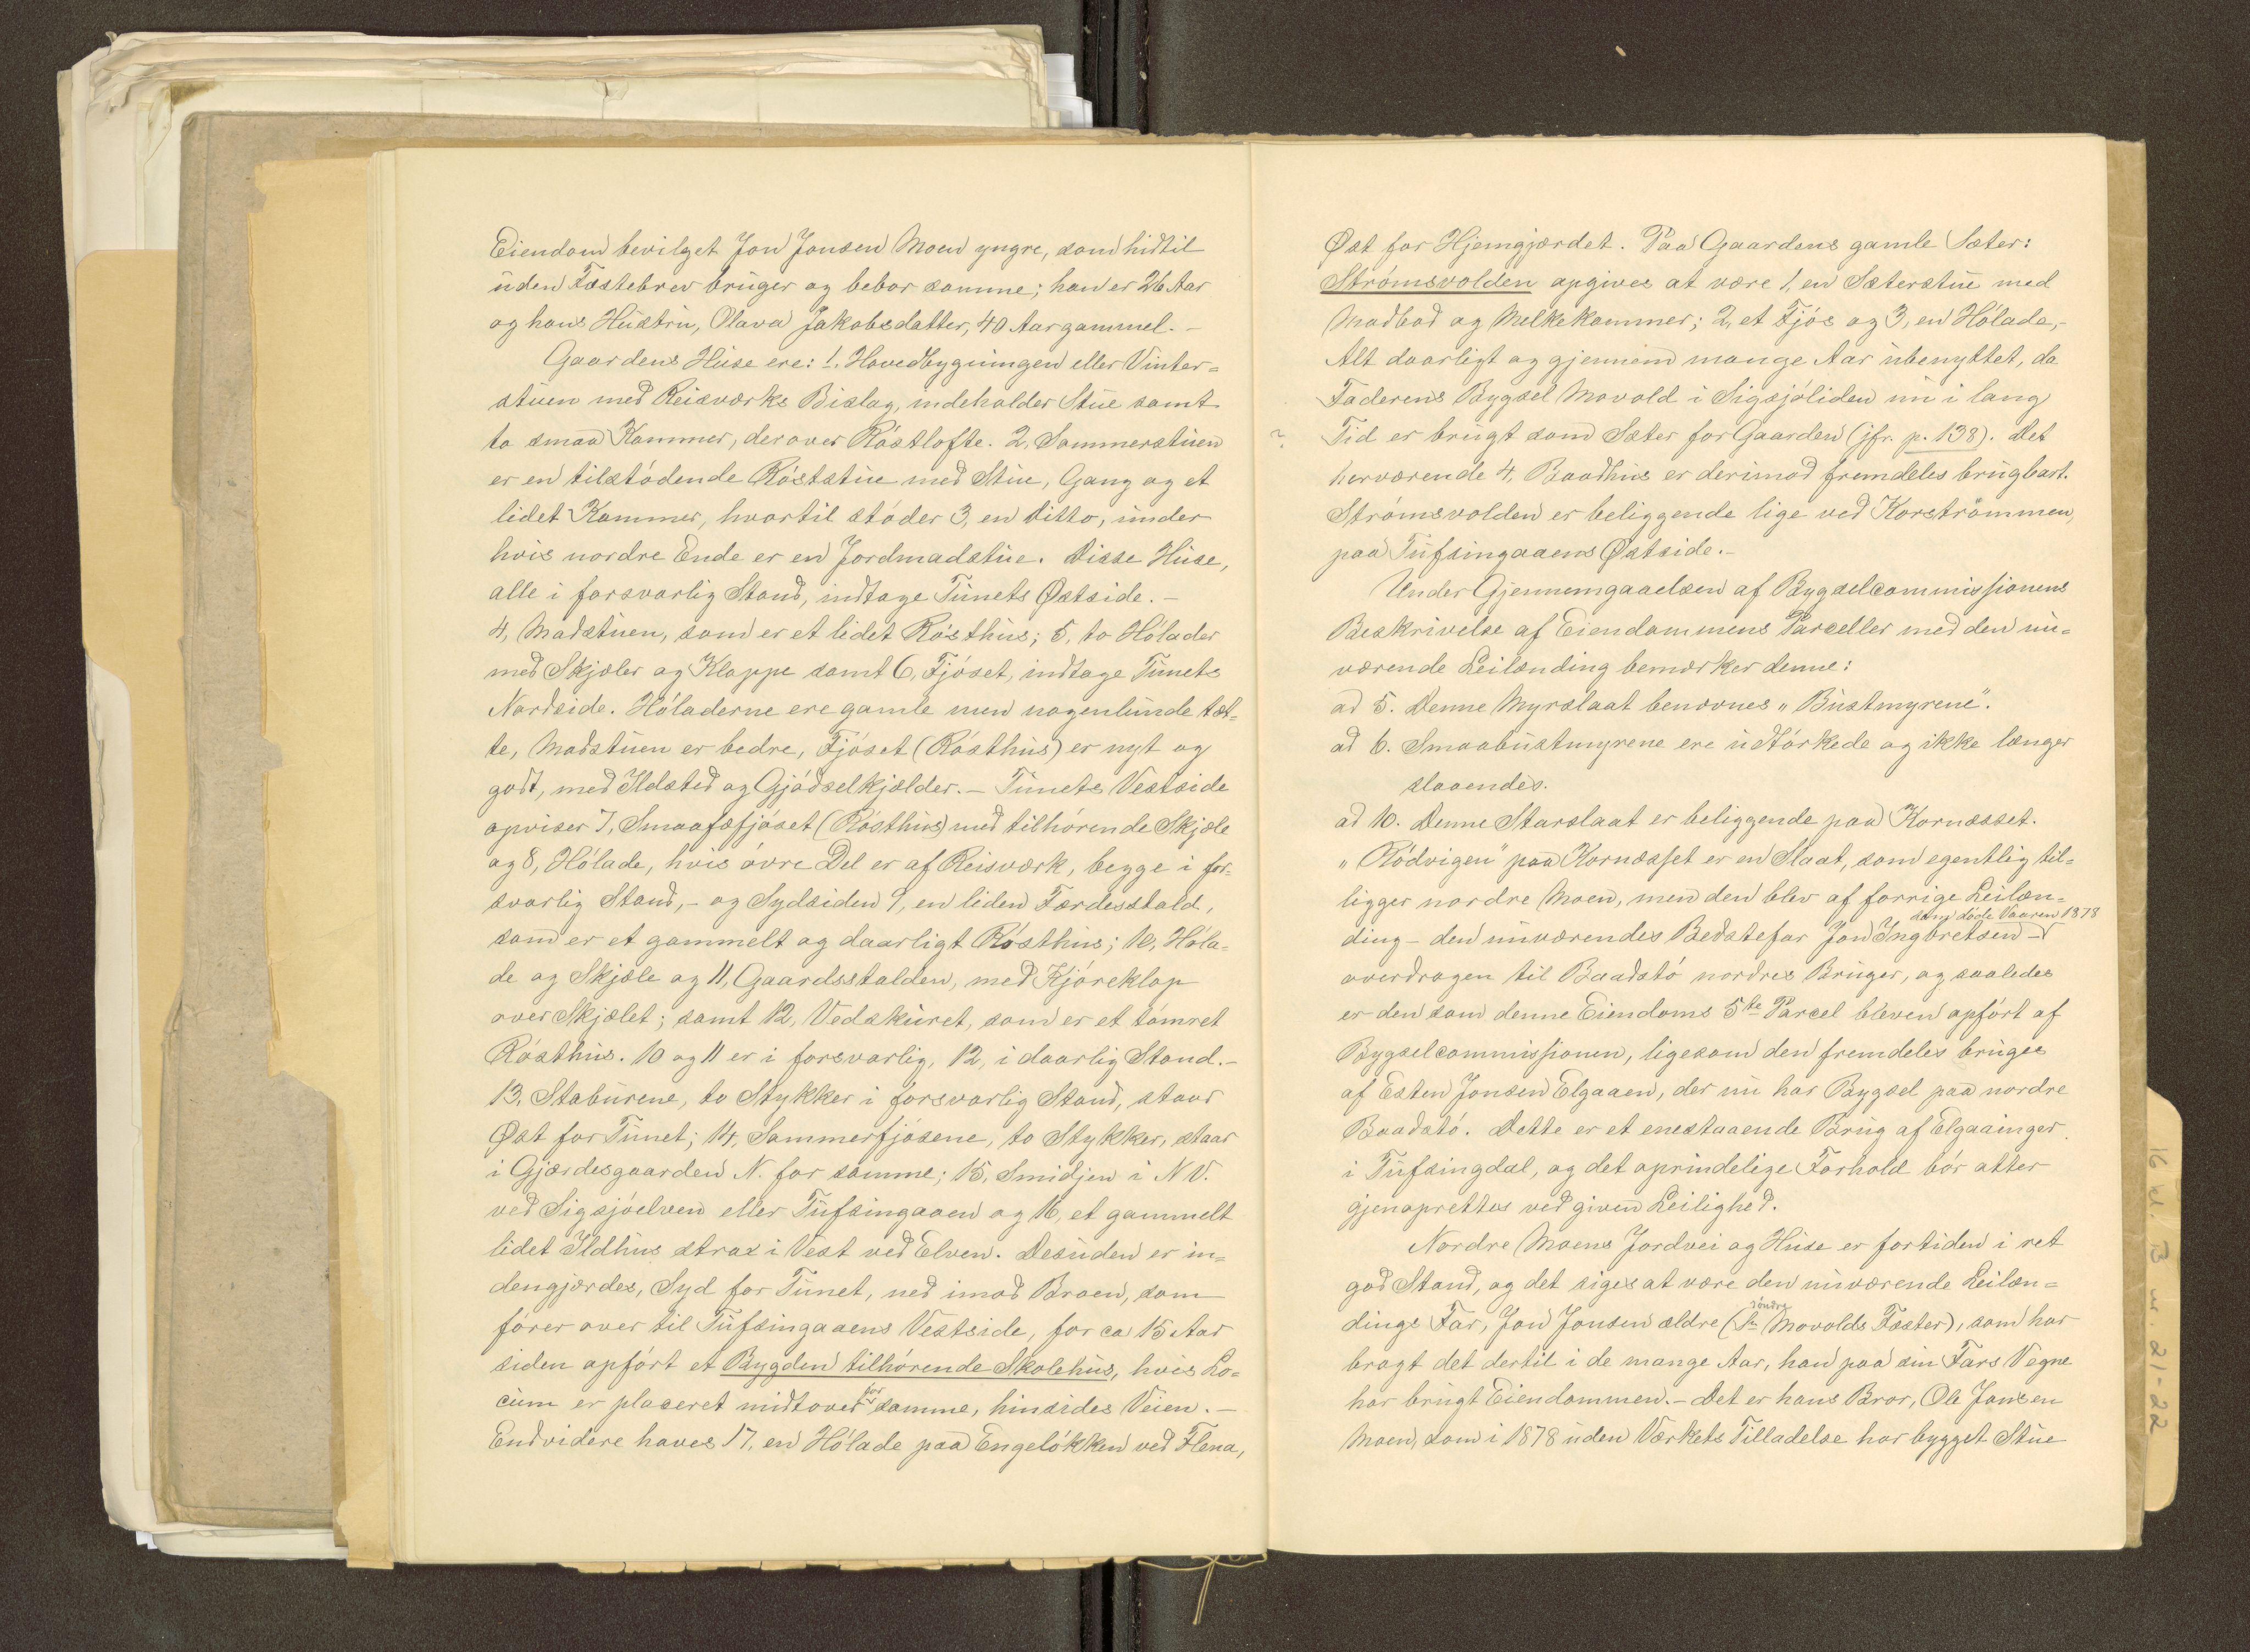 Eiendom bevilget Jon Jonsen Moen yngre, som hidtil
uden Fæstebrev bruger og bebor samme; han er 26 Aar
og hans Hustru, Olava Jakobsdatter, 40 Aar gammel. –
Gaardens Huse ere: 1. Hovedbygningen eller Vinter=
stuen med Reisværks Bislag, indeholder Stue samt
to smaa Kammer, derover Röstlofte. 2, Sommerstuen
er en tilstödende Röststue med Stue, Gang og et
lidet Kammer, hvortil stöder 3, en Ditto, under
hvis nordre Ende er en Jordmadstue. Disse Huse,
alle i forsvarlig Stand, indtage Tunets Østside. –
4, Madstuen, som er et lidet Rösthus; 5, to Hölader
med Skjæler og Kloppe samt 6, Fjöset, indtage Tunets
Nordside. Höladerne ere gamle men nogenlunde tæt=
te, Madstuen er bedre, Fjöset (Rösthus) er nyt og
godt, med Ildsted og Gjödselkjælder. – Tunets Vestside
opviser 7, Smaafæfjöset (Rösthus) med tilhörende Skjæle
og 8, Hölade, hvis övre Del er af Reisværk, begge i for=
svarlig Stand, – og Sydsiden 9, en liden Færdesstald,
som er et gammelt og daarligt Rösthus; 10, Höla=
de og Skjæle og 11, Gaardsstalden, med Kjöreklop
over Skjælet; samt 12, Vedskuret, som er et tömret
Rösthus. 10 og 11 er i forsvarlig, 12, i daarlig Stand. –
13, Staburene, to Stykker i forsvarlig Stand, staar
Øst for Tunet; 14, Sommerfjösene, to Stykker, staar
i Gjærdesgaarden N. for samme; 15, Smidjen i N V.
ved Sigsjöelven eller Tufsingaaen og 16, et gammelt
lidet Ildhus strax i Vest ved Elven. Desuden er in=
dengjærdes, Syd for Tunet, ned imod Broen, som
förer over til Tufsingaaens Vestside, for ca 15 Aar
siden opfört et Bygden tilhörende Skolehus, hvis Lo=
cum er placeret midtover for samme, hinsides Veien. –
Endvidere haves 17, en Hölade paa Engelökken ved Flena,
Øst for Hjemgjærdet. Paa Gaardens gamle Sæter:
Strömsvolden opgives at være 1, en Sæterstue med
Madbod og Melkekammer; 2, et Fjös og 3, en Hölade, –
Alt daarligt og gjennem mange Aar ubenyttet, da
Faderens Bygsel Movold i Sigsjöliden nu i lang
? Tid er brugt som Sæter for Gaarden (jfr. p. 138). Det
herværende 4, Baadhus er derimod fremdeles brugbart.
Strömsvolden er beliggende lige ved Korströmmen,
paa Tufsingaaens Østside. –
Under Gjennemgaaelsen af Bygselcommissionens
Beskrivelse af Eiendommens Parceller med den nu=
værende Leilænding bemærker denne:
ad 5. Denne Myrslaat benævnes „Bustmyrene".
ad 6. Smaabustmyrene ere udtörkede og ikke længer
slaaendes.
ad 10. Denne Starslaat er beliggende paa Kornæsset.
„Rödvigen" paa Kornæsset er en Slaat, som egentlig til=
ligger nordre Moen, men den blev af forrige Leilæn=
ding – den nuværendes Bedstefar Jon Ingbretsen som döde Vaaren 1878 –
overdragen til Baadstö nordres Bruger, og saaledes
er den som denne Eiendoms 5te Parcel bleven opfört af
Bygselcommissionen, ligesom den fremdeles bruges
af Esten Jonsen Elgaaen, der nu har Bygsel paa nordre
Baadstö. Dette er et enestaaende Brug af Elgaainger
i Tufsingdal, og det oprindelige Forhold bör atter
gjenoprettes ved given Leilighed.
Nordre Moens Jordvei og Huse er fortiden i ret
god Stand, og det siges at være den nuværende Leilæn=
dings Far, Jon Jonsen ældre (söndre Movolds Fæster), som har
bragt det dertil i de mange Aar, han paa sin Fars Vegne
har brugt Eiendommen. – Det er hans Bror, Ole Jonsen
Moen, som i 1878 uden Værkets Tilladelse har bygget Stue
16 kl. B nr. 21-22